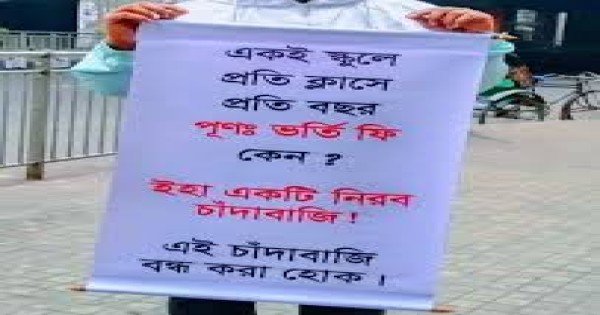 একই স্কুলে
প্রতি ক্লাসে
প্রতি বছর
পূণঃ ভর্তি ফি
কেন ?
ইহা একটি নিরব
চাঁদাবাজি!
এই চাঁদাবাজি
বন্ধ করা হোক।